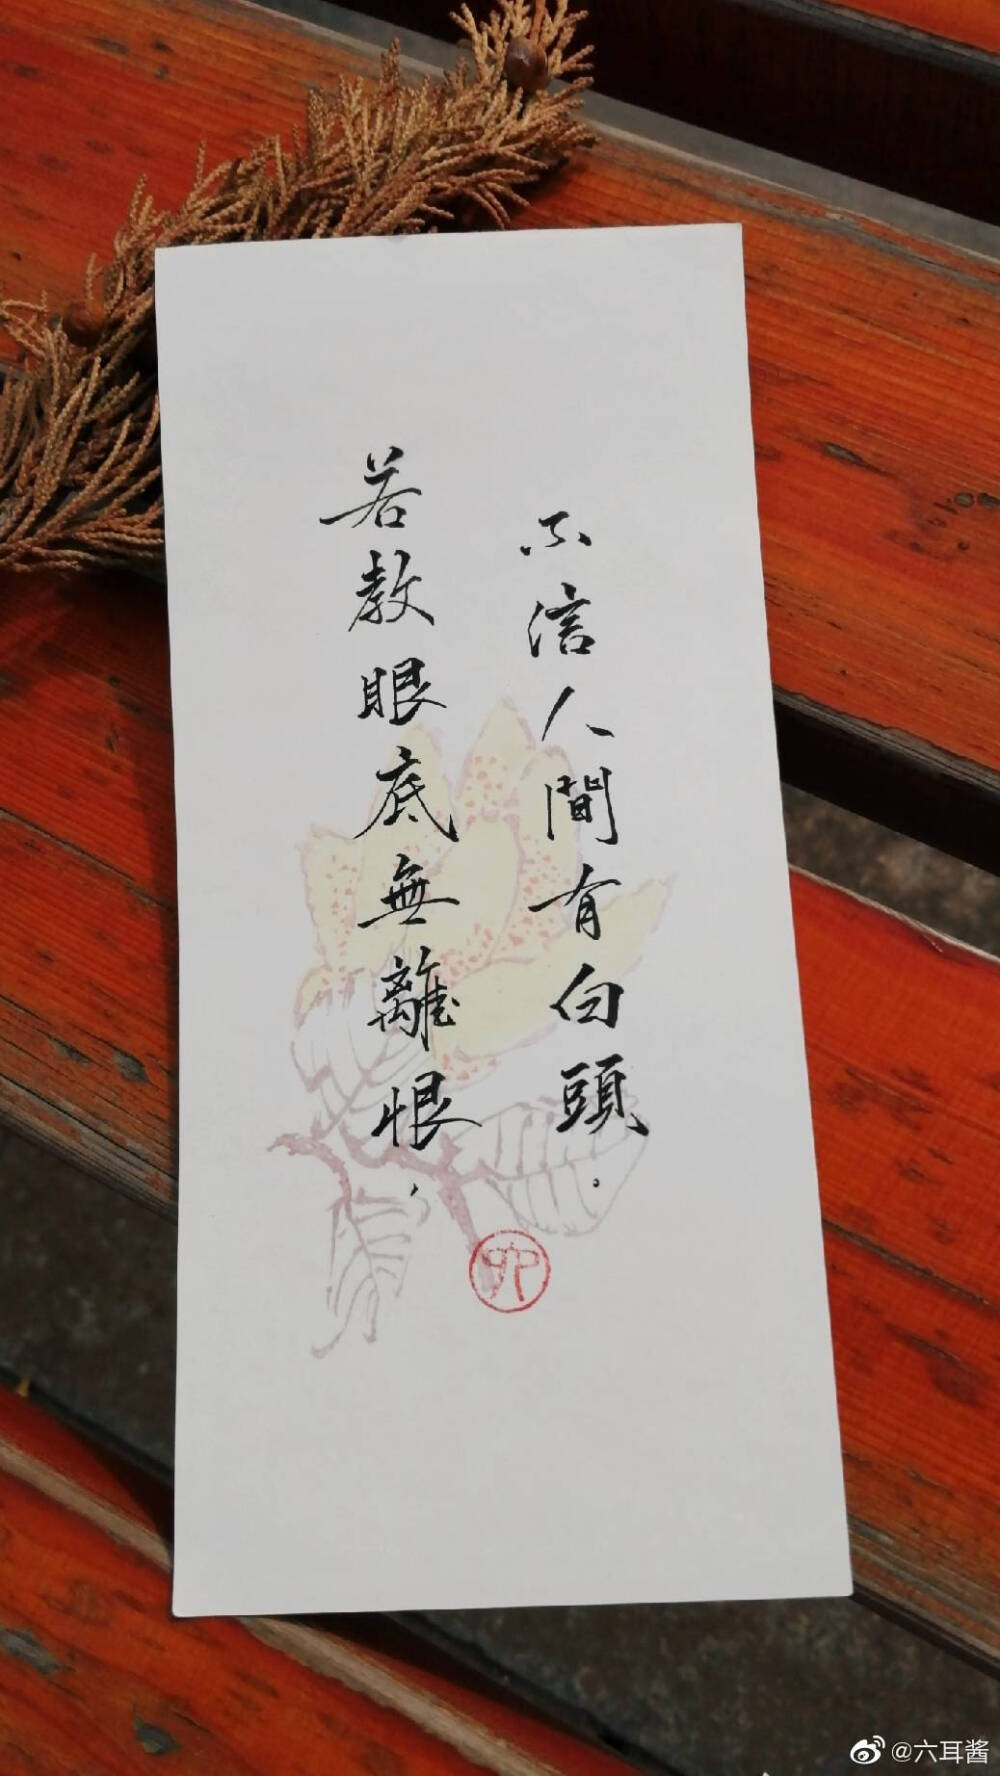 若教眼底無離恨，
不信人間有白頭。
@六耳酱